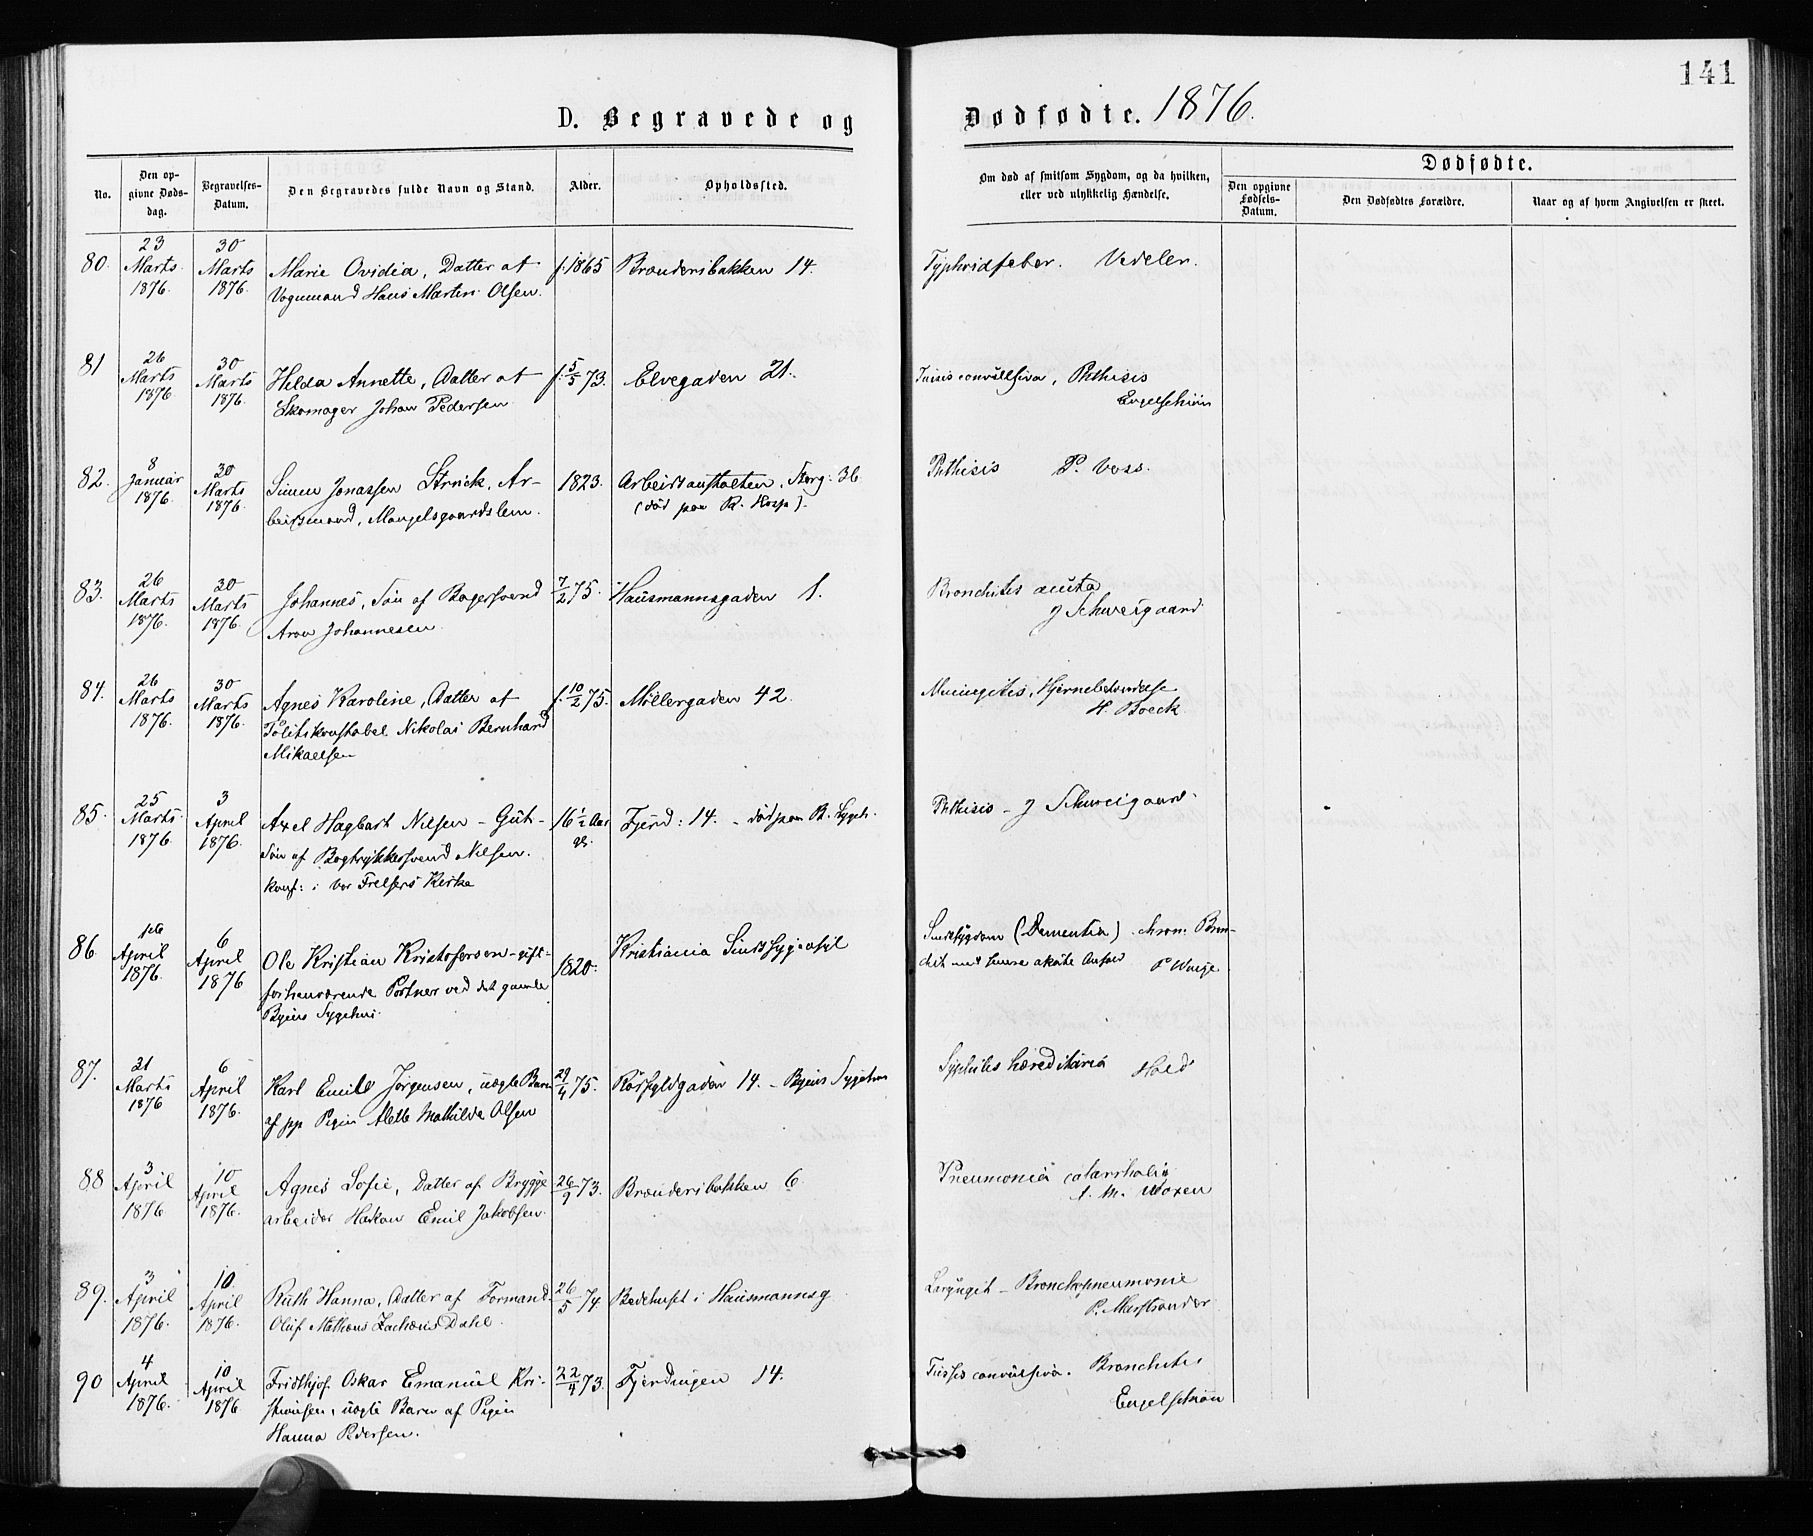 141
D. Begravede og Dødfødte. 1876.
No.
Den opgivne Dødsdag.
Begravelses-Datum.
Den Begravedes fulde Navn og Stand.
Alder.
Opholdssted.
Om død af smitsom Sygdom, og da hvilken, eller ved ulykkelig Hændelse.
Dødfødte.
Den opgivne Fødsels-Datum.
Den Dødfødtes Forældre.
Naar og af hvem Angivelsen er skeet.
80. 23 Marts 1876. 30 Marts 1876. Marie Ovidia, Datter af f. 1865 Brændersbakken 14. Typhoidfeber. Vedeler.
Vognmand Hans Martin Olsen.
81 26 Marts 1876 30 Marts 1876. Hilda Annette, Datter af f. 5/5 73. Elvegaden 21. Tussis convulsiva, Phthisis
Skomager Johan Pedersen Engelschiøn
82. 8 Januar 1876. 30 Marts 1876. Simen Jonassen Strück, Ar- 1823. Arbeidsanstalten, Storg: 36 Phthisis P. Voss.
beidsmand, Mangelsgaardslem. (død paa R. Hosp).
83. 26 Marts 1876. 30 Marts 1876. Johannes, Søn af Bagersvend 7/2 75. Hausmannsgaden 1. Bronchitis acuta
Aron Johannesen J Schweigaard
84. 26 Marts 1876. 30 Marts 1876. Agnes Karoline, Datter af f. 10/2 75. Møllergaden 42. Meningitis, Hjernebetændelse
Politikonstabel Nikolai Bernhard H. Boeck.
Mikaelsen
85. 25 Marts 1876. 3 April 1876. Axel Hagbart Nilsen - Gut- 16 1/2 Aar gl. Fjerd: 14. - død paa B. Sygeh. Phthisis - J Schweigaard.
Søn af Bogtrykkersvend Nilsen.
konf: i Vor Frelsers Kirke
86. April 1876. 6 April 1876 Ole Kristian Kristofersen - gift- 1820. Kristiania Sindssygeasyl Sindssygdom (Dementia). chron: Bron-
forhenværende Portner ved det gamle chit med akute P Winge
Byens Sygehus
87. 31 Marts 1876 6 April 1876. Karl Emile Jørgensen, uægte Barn 29/4 75. Rørfyldgaden 14. - Byens Sygehus Syphilis hæreditaria Hold
af pp Pigen Alette Mathilde Olsen
88 3 April 1876 10 April 1876. Agnes Sofie, Datter af Brygge 26/9 73. Brændersbakken 6. Pneumonia catarrhalis
arbeider Hakon Emil Jakobsen. A. M. Woxen
89. 3 April 1876. 10 April 1876. Ruth Hanna, Datter af Formand 26/5 74. Bedehuset i Hausmannsg. Laryngit - Bronchopneumonie
Oluf Mathæus Zacharias Dahl. P. Marstrander
90 4 April 1876. 10 April 1876 Fridthjof Oskar Emanuel Kri- 22/4 73. Fjerdingen 14. Tussis convulsiva. Bronchitis
stiansen, uægte Barn af Pigen Engelschiøn
Hanna Pedersen.